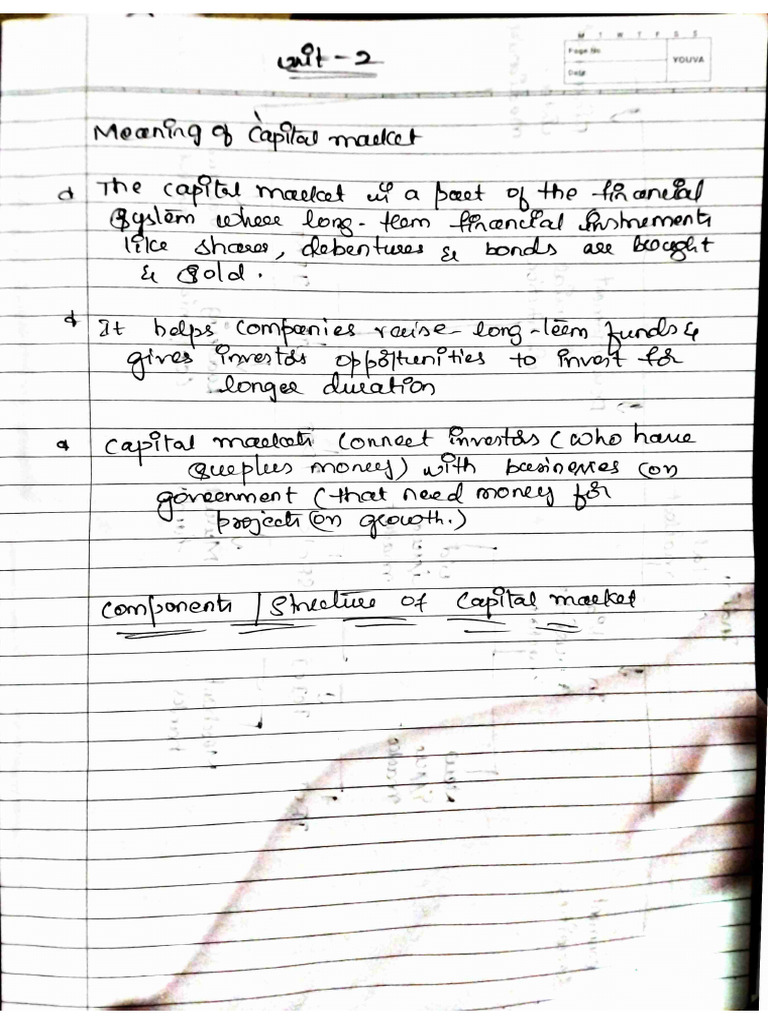 M T W T F S S
Page No
Date
YOUVA
Unit - 2
Meaning of Capital market
The capital market is a part of the financial
System where long-term financial instruments
like shares, debentures & bonds are bought
& sold.
It helps companies raise long-term funds &
gives investors opportunities to invest for
longer duration
Capital markets connect investors (who have
Surplus money) with businesses (or
government (that need money for
projects (or growth.)
Components / Structure of Capital market